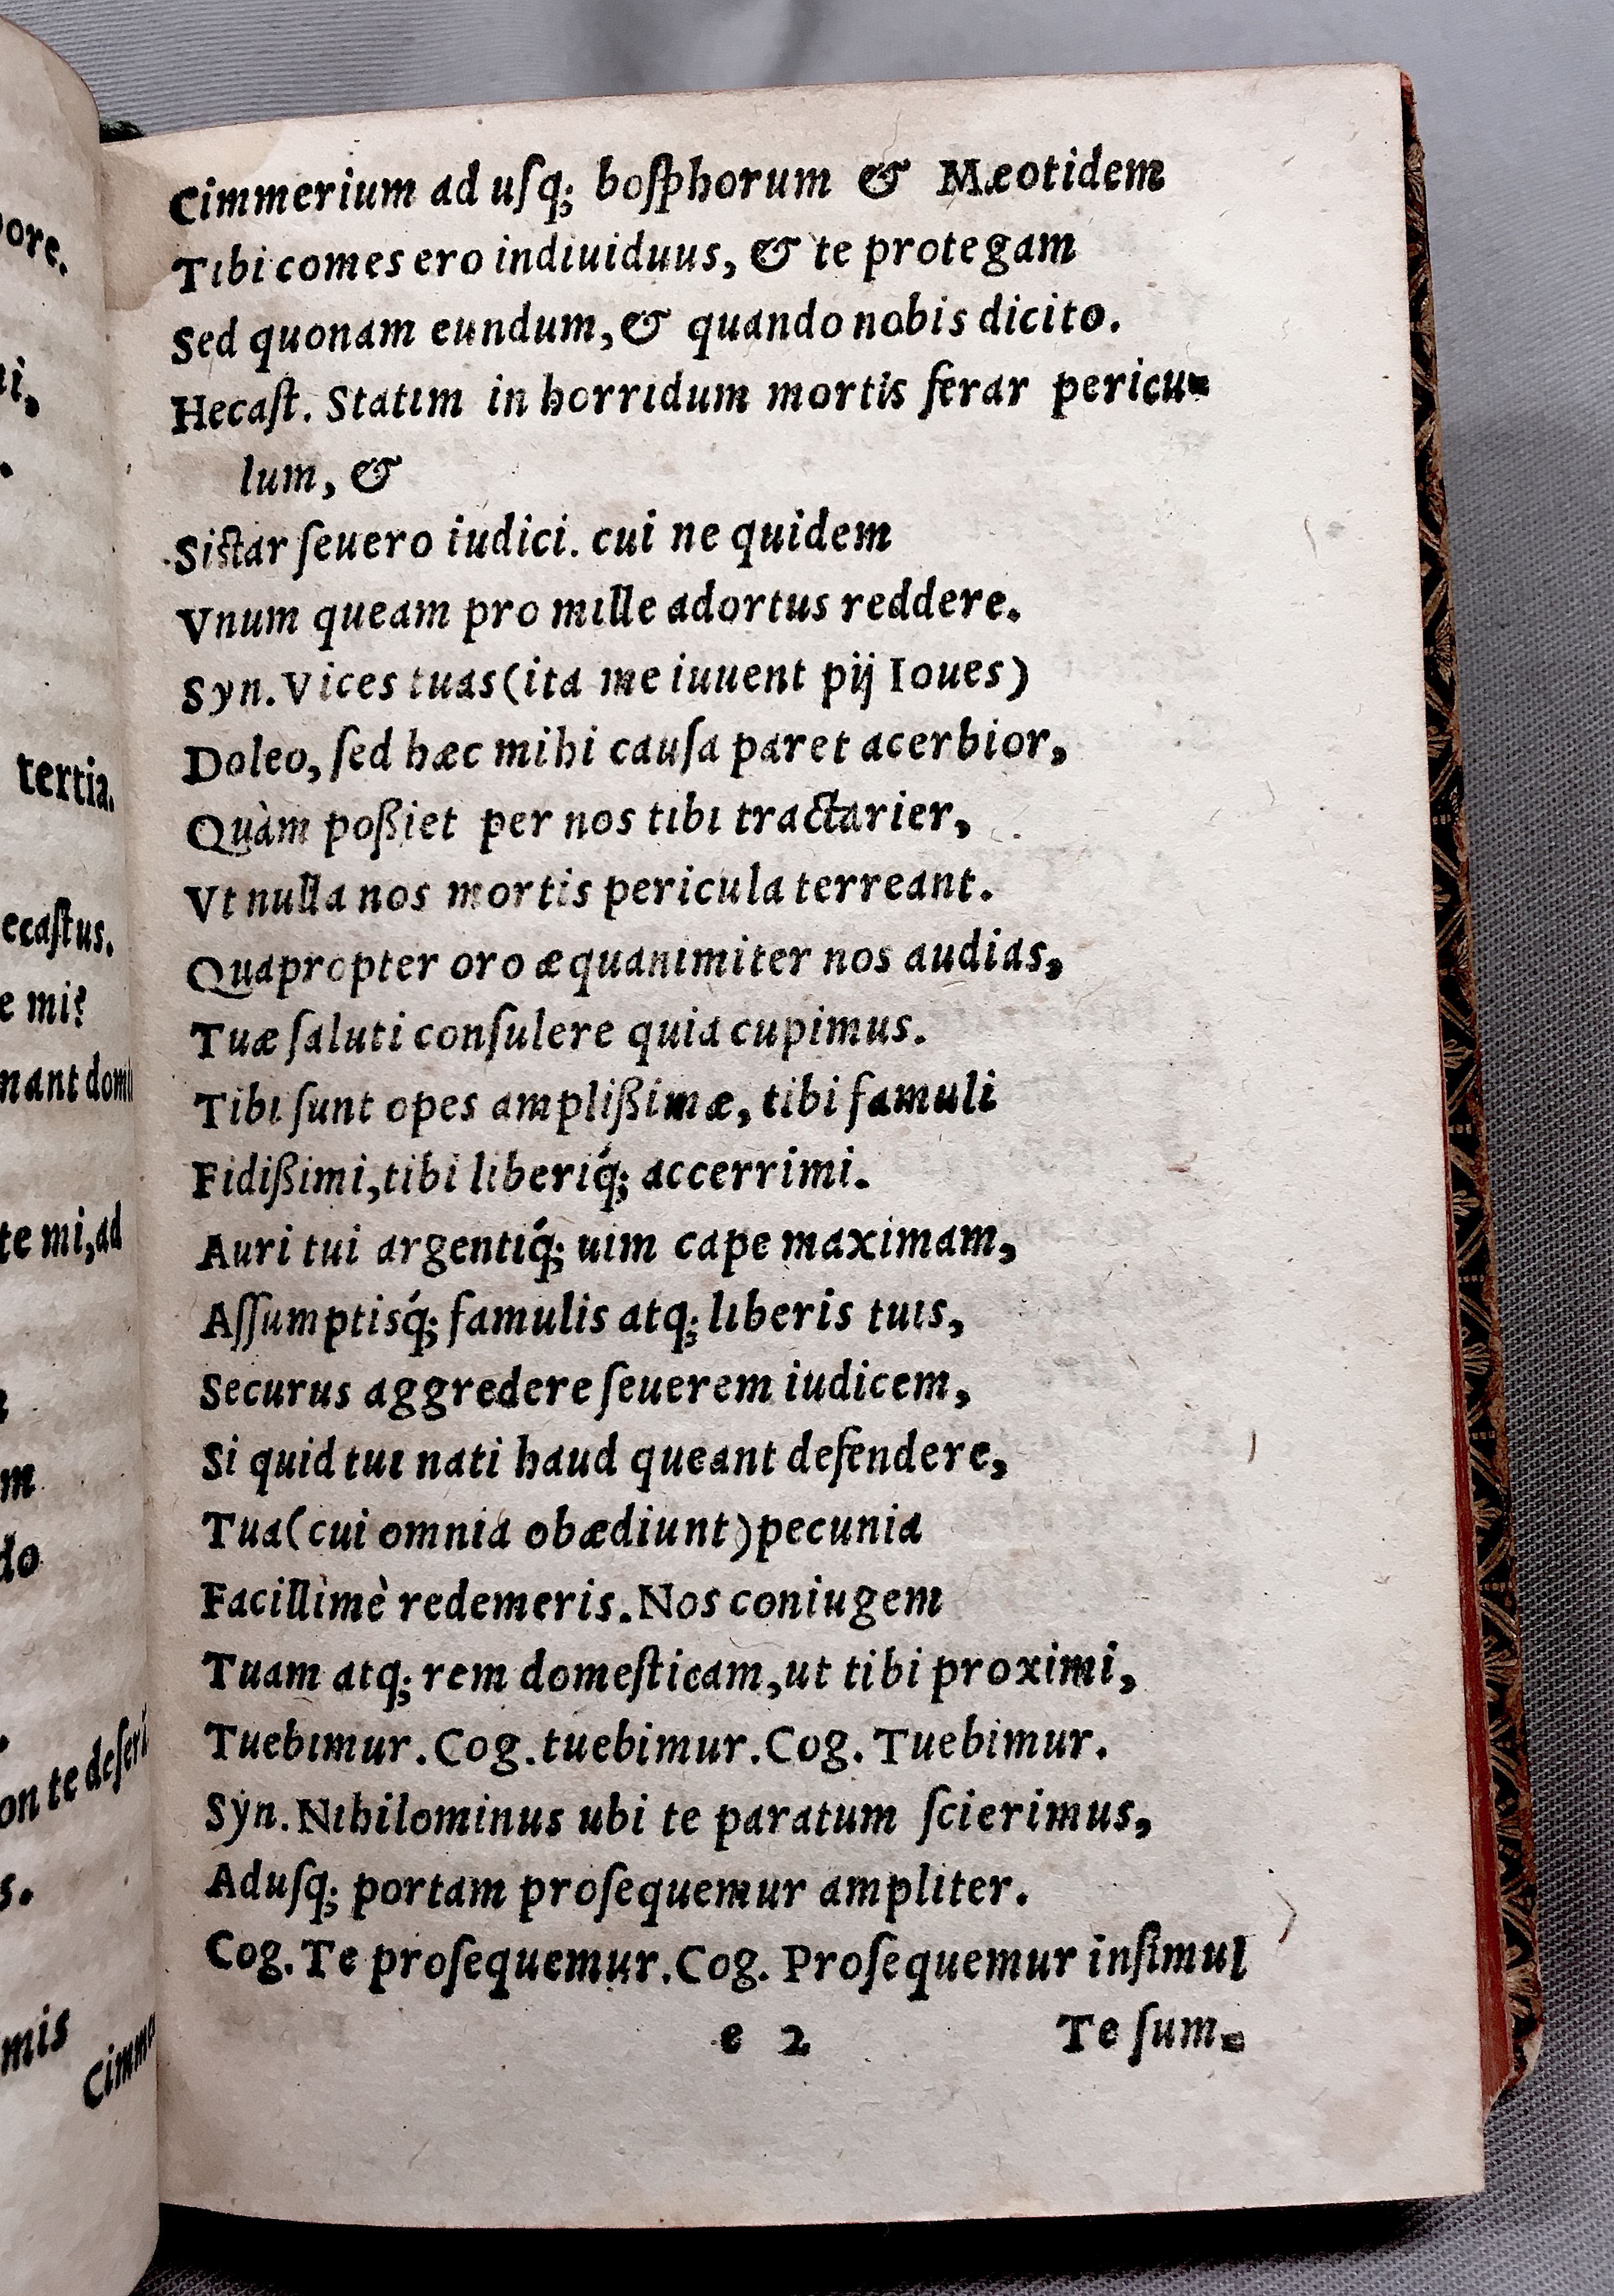 Cimmerium ad uſq; boſphorum & Mæotidem
Tibi comes ero indiuiduus, & te protegam
Sed quonam eundum, & quando nobis dicito.
Hecaſt. Statim in horridum mortis ferar pericu-
lum, &
Siſtar ſeuero iudici. cui ne quidem
Vnum queam pro mille adortus reddere.
Syn. Vices tuas (ita me iuuent pij Ioues)
Doleo, ſed hæc mihi cauſa paret acerbior,
Quàm poßiet per nos tibi tractarier,
Vt nulla nos mortis pericula terreant.
Quapropter oro æquanimiter nos audias,
Tuæ ſaluti conſulere quia cupimus.
Tibi ſunt opes amplißimæ, tibi famuli
Fidißimi, tibi liberiq́; accerrimi.
Auri tui argentiq́; uim cape maximam,
Aſſumptisq́; famulis atq; liberis tuis,
Securus aggredere ſeuerem iudicem,
Si quid tui nati haud queant defendere,
Tua (cui omnia obædiunt) pecunia
Facillimè redemeris. Nos coniugem
Tuam atq; rem domeſticam, ut tibi proximi,
Tuebimur. Cog. tuebimur. Cog. Tuebimur.
Syn. Nihilominus ubi te paratum ſcierimus,
Aduſq; portam proſequemur ampliter.
Cog. Te proſequemur. Cog. Proſequemur inſimul
e 2 Te ſum-
tertia.
ecaſtus.
e mi?
nant domi
te mi, ad
on te deſeri
mis